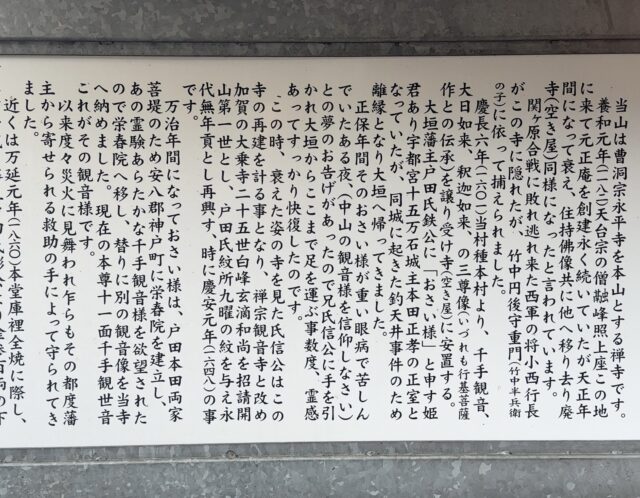 当山は曹洞宗永平寺を本山とする禅寺です。
養和元年(一一八一)天台宗の僧融峰照上座この地
に来て元正庵を創建永く続いていたが天正年
間になって衰え、住持佛像共に他へ移り去り廃
寺(空き屋)同様になったと言われています。
関ヶ原合戦に敗れ逃れ来た西軍の将小西行長
がこの寺に隠れたが、竹中円後守重門(竹中半兵衛
の子)に依って捕えられました。
慶長六年(一六〇一)当村種本村より、千手観音、
大日如来、釈迦如来、の三尊像(いづれも行基菩薩
作との伝承)を譲り受け寺(空き屋)に安置する。
大垣藩主戸田氏鉄公に「おさい様」と申す姫
君あり宇都宮十五万石城主本田正孝の正室と
なっていたが、同城に起きた釣天井事件のため
離縁となり大垣へ帰ってきました。
正保年間そのおさい様が重い眼病で苦しん
でいたある夜、(中山の観音様を信仰しなさい)
との夢のお告げがあったので兄氏信公に手を引
かれ大垣からここまで足を運ぶ事数度、霊感
あってすっかり快復したのです。
この時、衰えた姿の寺を見た氏信公はこの
寺の再建を計る事となり、禅宗観音寺と改め
加賀の大乗寺二十五世白峰玄滴和尚を招請開
山第一世とし、戸田氏紋所九曜の紋を与え永
代無年貢とし再興す、時に慶安元年(一六四八)の事
です。
万治年間になっておさい様は、戸田本田両家
菩堤のため安八郡神戸町に栄春院を建立し、
あの霊験あらたかな千手観音様を欲望された
ので栄春院へ移し、替りに別の観音像を当寺
へ納めました。現在の本尊十一面千手観世音
これがその観音様です。
以来度々災火に見舞われ乍らもその都度藩
主から寄せられる救助の手によって守られてき
ました。
近くは万延元年(一八六〇)本堂庫裡全焼に際し、